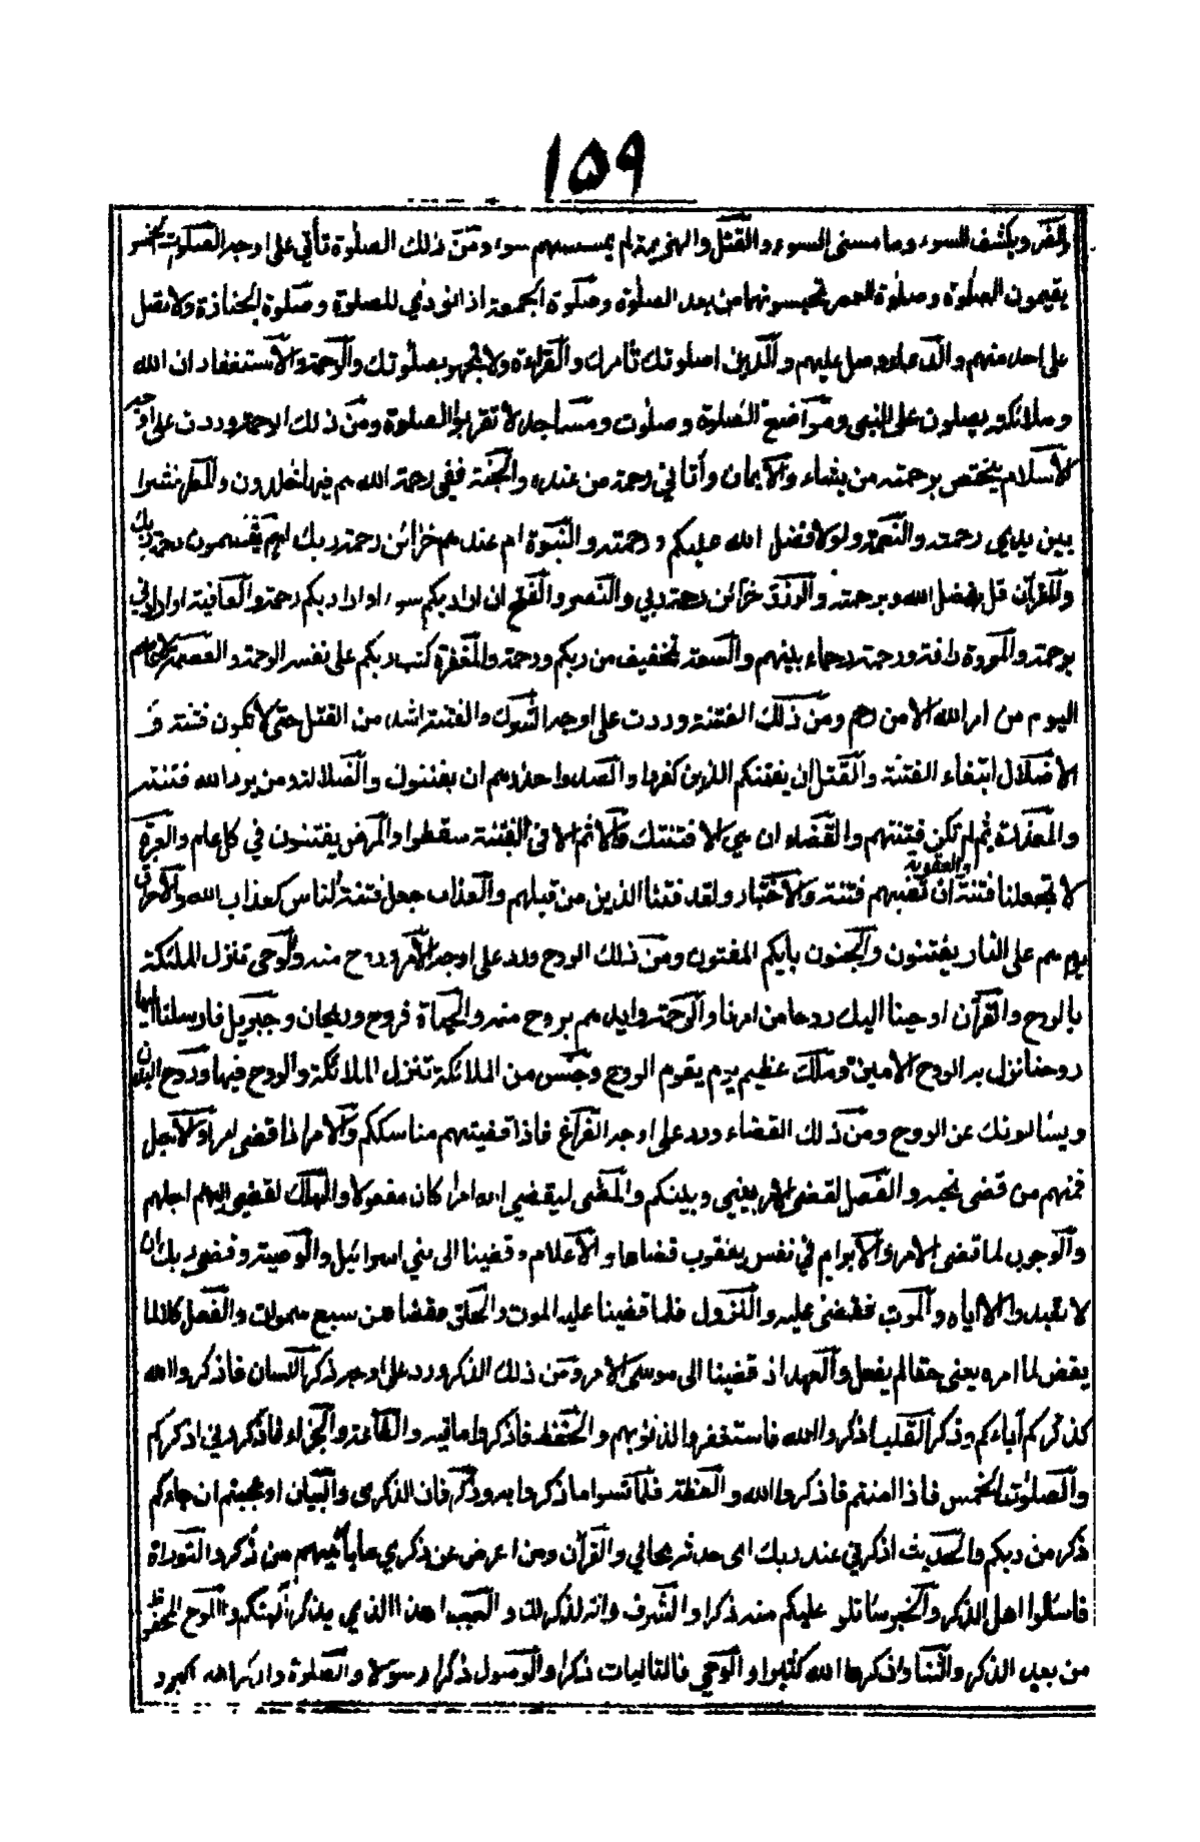 ١٥٩
والضر ويكشف السوء وما مسني السوء والقتل والهزيمة لم يمسسهم سوء ومن ذلك الصلوة تأتي على اوجه الصلوت الخمس
يقيمون الصلوة وصلوة العصر تحبسونهما من بعد الصلوة وصلوة الجمعة اذا نودي للصلوة وصلوة الجنازة ولا تصل
على احد منهم والدعاء وصل عليهم والدين اصلوتك تأمرك والقراءة ولا تجهر بصلوتك والرحمة والاستغفار ان الله
وملائكته يصلون على النبي ومواضع الصلوة وصلوت ومساجد لا تقربوا الصلوة ومن ذلك الرحمة وردت على اوجه
الاسلام يختص برحمته من يشاء والايمان وأتاني رحمة من عنده والجنة ففي رحمة الله هم فيها خالدون والمطر نشرا
بين يدي رحمته والنعمة ولولا فضل الله عليكم ورحمته والنبوة ام عندهم خزائن رحمة ربك اهم يقسمون رحمة ربك
والقرآن قل بفضل الله وبرحمته والرزق خزائن رحمة ربي والنصر والفتح ان اراد بكم سوءا او اراد بكم رحمة والعافية او ارادني
برحمة والمودة رافة ورحمة رحماء بينهم والسعة تخفيف من ربكم ورحمة والمغفرة كتب ربكم على نفسه الرحمة والعصمة لا عاصم
اليوم من امر الله الا من رحم ومن ذلك الفتنة وردت على اوجه الشرك والفتنة اشد من القتل حتى لا تكون فتنة و
الاضلال ابتغاء الفتنة والقتل ان يفتنكم الذين كفروا والصد واحذرهم ان يفتنوك والضلالة ومن يرد الله فتنته
والمعذرة ثم لم تكن فتنتهم والقضاء ان هي الا فتنتك والاثم الا في الفتنة سقطوا والمرض يفتنون في كل عام والعبرة
والعقوبة
لا تجعلنا فتنة ان تصبهم فتنة والاختبار ولقد فتنا الذين من قبلهم والعذاب جعل فتنة الناس كعذاب الله والاحراق
يوم هم على النار يفتنون والجنون بأيكم المفتون ومن ذلك الروح ورد على اوجه الامر وروح منه والوحي تنزل الملئكة
بالروح والقرآن اوحينا اليك روحا من امرنا والرحمة وايدهم بروح منه والحياة فروح وريحان وجبريل فارسلنا اليها
روحنا نزل به الروح الامين وملك عظيم يوم يقوم الروح وجنس من الملائكة تنزل الملائكة والروح فيها وروح البدن
ويسألونك عن الروح ومن ذلك القضاء ورد على اوجه الفراغ فاذا قضيتم مناسككم والامر اذا قضى امرا والاجل
فمنهم من قضى نحبه والفصل لقضي الامر بيني وبينكم والمضى ليقضي الله امرا كان مفعولا والهلاك لقضي اليهم اجلهم
والوجوب لما قضي الامر والابرام في نفس يعقوب قضاها والاعلام وقضينا الى بني اسرائيل والوصية وقضى ربك ان
لا تعبدوا الا اياه والموت فقضى عليه والنزول فلما قضينا عليه الموت والخلق فقضاهن سبع سموات والفعل كلا لما
يقض ما امره يعني حقا لم يفعل والعهد اذ قضينا الى موسى الامر ومن ذلك الذكر ورد على اوجه ذكر اللسان فاذكروا الله
كذكركم آباءكم وذكر القلب ذكروا الله فاستغفروا لذنوبهم والحفظ فاذكروا ما فيه والطاعة والجزاء فاذكروني اذكركم
والصلوت الخمس فاذا امنتم فاذكروا الله والعظة فلما نسوا ما ذكروا به وذكر فان الذكرى والبيان او عجبتم ان جاءكم
ذكر من ربكم والحديث اذكرني عند ربك اى حدثه بحالي والقرآن ومن اعرض عن ذكري ما يأتيهم من ذكر والتوراة
فاسئلوا اهل الذكر والخبر سأتلو عليكم منه ذكرا والشرف وانه لذكر لك والعيب اهذا الذي يذكر آلهتكم واللوح المحفوظ
من بعد الذكر والثناء واذكروا الله كثيرا والوحي فالتاليات ذكرا والرسول ذكرا رسولا والصلوة ولذكر الله اكبر و